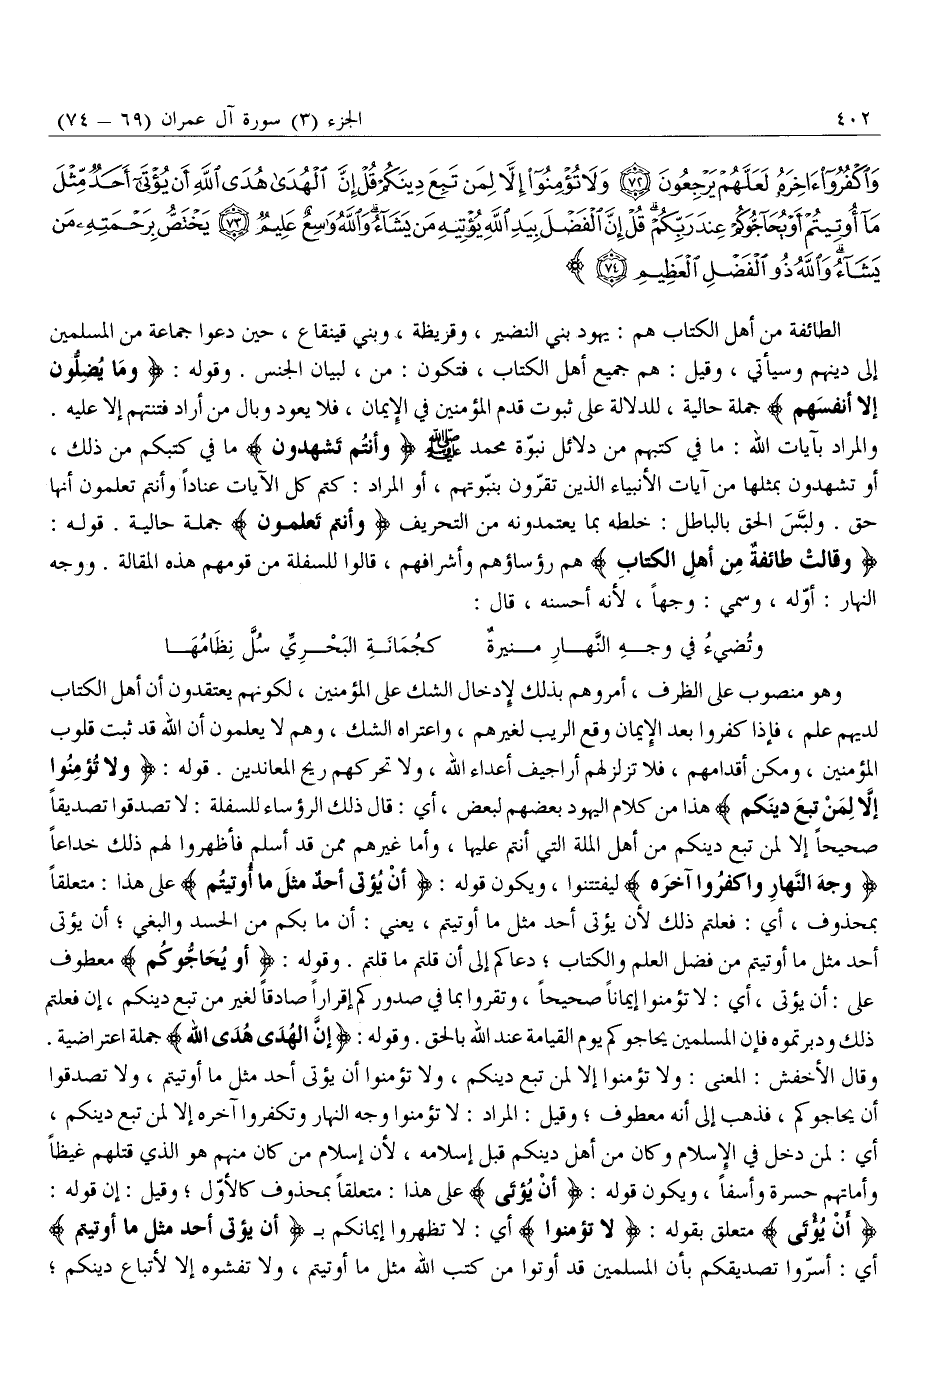 ٤٠٢ الجزء (٣) سورة آل عمران (٦٩ – ٧٤)
وَٱكْفُرُوٓا۟ ءَاخِرَهُۥ لَعَلَّهُمْ يَرْجِعُونَ ۝٧٢ وَلَا تُؤْمِنُوٓا۟ إِلَّا لِمَن تَبِعَ دِينَكُمْ قُلْ إِنَّ ٱلْهُدَىٰ هُدَى ٱللَّهِ أَن يُؤْتَىٰٓ أَحَدٌ مِّثْلَ
مَآ أُوتِيتُمْ أَوْ يُحَآجُّوكُمْ عِندَ رَبِّكُمْ ۗ قُلْ إِنَّ ٱلْفَضْلَ بِيَدِ ٱللَّهِ يُؤْتِيهِ مَن يَشَآءُ ۗ وَٱللَّهُ وَٰسِعٌ عَلِيمٌ ۝٧٣ يَخْتَصُّ بِرَحْمَتِهِۦ مَن
يَشَآءُ ۗ وَٱللَّهُ ذُو ٱلْفَضْلِ ٱلْعَظِيمِ ۝٧٤ ﴾
الطائفة من أهل الكتاب هم : يهود بني النضير ، وقريظة ، وبني قينقاع ، حين دعوا جماعة من المسلمين
إلى دينهم وسيأتي ، وقيل : هم جميع أهل الكتاب ، فتكون : من ، لبيان الجنس . وقوله : ﴿ ومَا يُضِلُّون
إلا أنفسَهم ﴾ جملة حالية ، للدلالة على ثبوت قدم المؤمنين في الإِيمان ، فلا يعود وبال من أراد فتنتهم إلا عليه .
والمراد بآيات الله : ما في كتبهم من دلائل نبوّة محمد ﷺ ﴿ وأنتُم تَشهدون ﴾ ما في كتبكم من ذلك ،
أو تشهدون بمثلها من آيات الأنبياء الذين تقرّون بنبّوتهم ، أو المراد : كتم كل الآيات عناداً وأنتم تعلمون أنها
حق . ولبَّسَ الحق بالباطل : خلطه بما يعتمدونه من التحريف ﴿ وأنتم تَعلمـون ﴾ جملـة حاليـة . قولـه :
﴿ وقالتْ طائفةٌ مِن أهلِ الكتابِ ﴾ هم رؤساؤهم وأشرافهم ، قالوا للسفلة من قومهم هذه المقالة . ووجه
النهار : أوّله ، وسمي : وجهاً ، لأنه أحسنه ، قال :
وتُضيءُ في وجـهِ النَّهـارِ منـيرةً كجُمَانَـةِ البَحْـريِّ سُلَّ نِظَامُهَـا
وهو منصوب على الظرف ، أمروهم بذلك لإدخال الشك على المؤمنين ، لكونهم يعتقدون أن أهل الكتاب
لديهم علم ، فإذا كفروا بعد الإِيمان وقع الريب لغيرهم ، واعتراه الشك ، وهم لا يعلمون أن الله قد ثبت قلوب
المؤمنين ، ومكن أقدامهم ، فلا تزلزلهم أراجيف أعداء الله ، ولا تحركهم ريح المعاندين . قوله : ﴿ ولا تُؤمِنُوا
إلَّا لِمَنْ تبعَ دينَكم ﴾ هذا من كلام اليهود بعضهم لبعض ، أي : قال ذلك الرؤساء للسفلة : لا تصدقوا تصديقاً
صحيحاً إلا لمن تبع دينكم من أهل الملة التي أنتم عليها ، وأما غيرهم ممن قد أسلم فأظهروا لهم ذلك خداعاً
﴿ وجهَ النَّهارِ واكفُروا آخرَه ﴾ ليفتتنوا ، ويكون قوله : ﴿ أنْ يُؤتى أحدٌ مثلَ ما أُوتيتُم ﴾ على هذا : متعلقاً
بمحذوف ، أي : فعلتم ذلك لأن يؤتى أحد مثل ما أوتيتم ، يعني : أن ما بكم من الحسد والبغي ؛ أن يؤتى
أحد مثل ما أوتيتم من فضل العلم والكتاب ؛ دعاكم إلى أن قلتم ما قلتم . وقوله : ﴿ أو يُحَاجُّوكُم ﴾ معطوف
على : أن يؤتى ، أي : لا تؤمنوا إيماناً صحيحاً ، وتقروا بما في صدوركم إقراراً صادقاً لغير من تبع دينكم ، إن فعلتم
ذلك ودبرتموه فإن المسلمين يحاجوكم يوم القيامة عند الله بالحق . وقوله : ﴿ إنَّ الهُدَى هُدَى الله ﴾ جملة اعتراضية .
وقال الأخفش : المعنى : ولا تؤمنوا إلا لمن تبع دينكم ، ولا تؤمنوا أن يؤتى أحد مثل ما أوتيتم ، ولا تصدقوا
أن يحاجوكم ، فذهب إلى أنه معطوف ؛ وقيل : المراد : لا تؤمنوا وجه النهار وتكفروا آخره إلا لمن تبع دينكم ،
أي : لمن دخل في الإِسلام وكان من أهل دينكم قبل إسلامه ، لأن إسلام من كان منهم هو الذي قتلهم غيظاً
وأماتهم حسرة وأسفاً ، ويكون قوله : ﴿ أنْ يُؤتَى ﴾ على هذا : متعلقاً بمحذوف كالأوّل ؛ وقيل : إن قوله :
﴿ أَنْ يُؤْتَى ﴾ متعلق بقوله : ﴿ لا تؤمنوا ﴾ أي : لا تظهروا إيمانكم بـ ﴿ أن يؤتى أحد مثل ما أوتيتم ﴾
أي : أسرّوا تصديقكم بأن المسلمين قد أوتوا من كتب الله مثل ما أوتيتم ، ولا تفشوه إلا لأتباع دينكم ؛